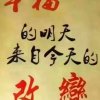 幸福
的明天
来自今天的
改變